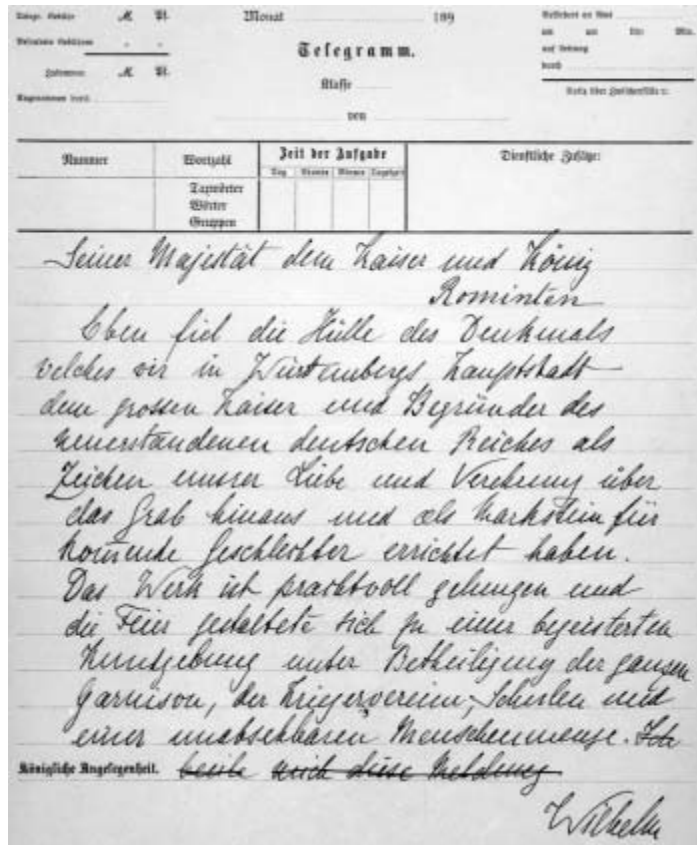 Telegr. Gebühr M. Pf. Monat 189
Telegramm.
Zusammen M. Pf.
Angenommen durch
Klasse
von
Befördert an Amt
um Uhr Min.
auf Leitung
durch
Nummer Wortzahl Zeit der Aufgabe Dienstliche Zusätze:
Taxwörter
Wörter
Gruppen
Seiner Majestät dem Kaiser und König
Rominten
Eben fiel die Hülle des Denkmals
welches wir in Württembergs Hauptstadt
dem grossen Kaiser und Begründer des
neuerstandenen deutschen Reiches als
Zeichen unsrer Liebe und Verehrung über
das Grab hinaus und als Markstein für
kom̄ende Geschlechter errichtet haben.
Das Werk ist prachtvoll gelungen und
die Feier gestaltete sich zu einer begeisterten
Kundgebung unter Betheiligung der ganzen
Garnison, der Kriegervereine, Schulen und
einer unabsehbaren Menschenmenge. Ich
Königliche Angelegenheit. beeile mich diese Meldung
Wilhelm